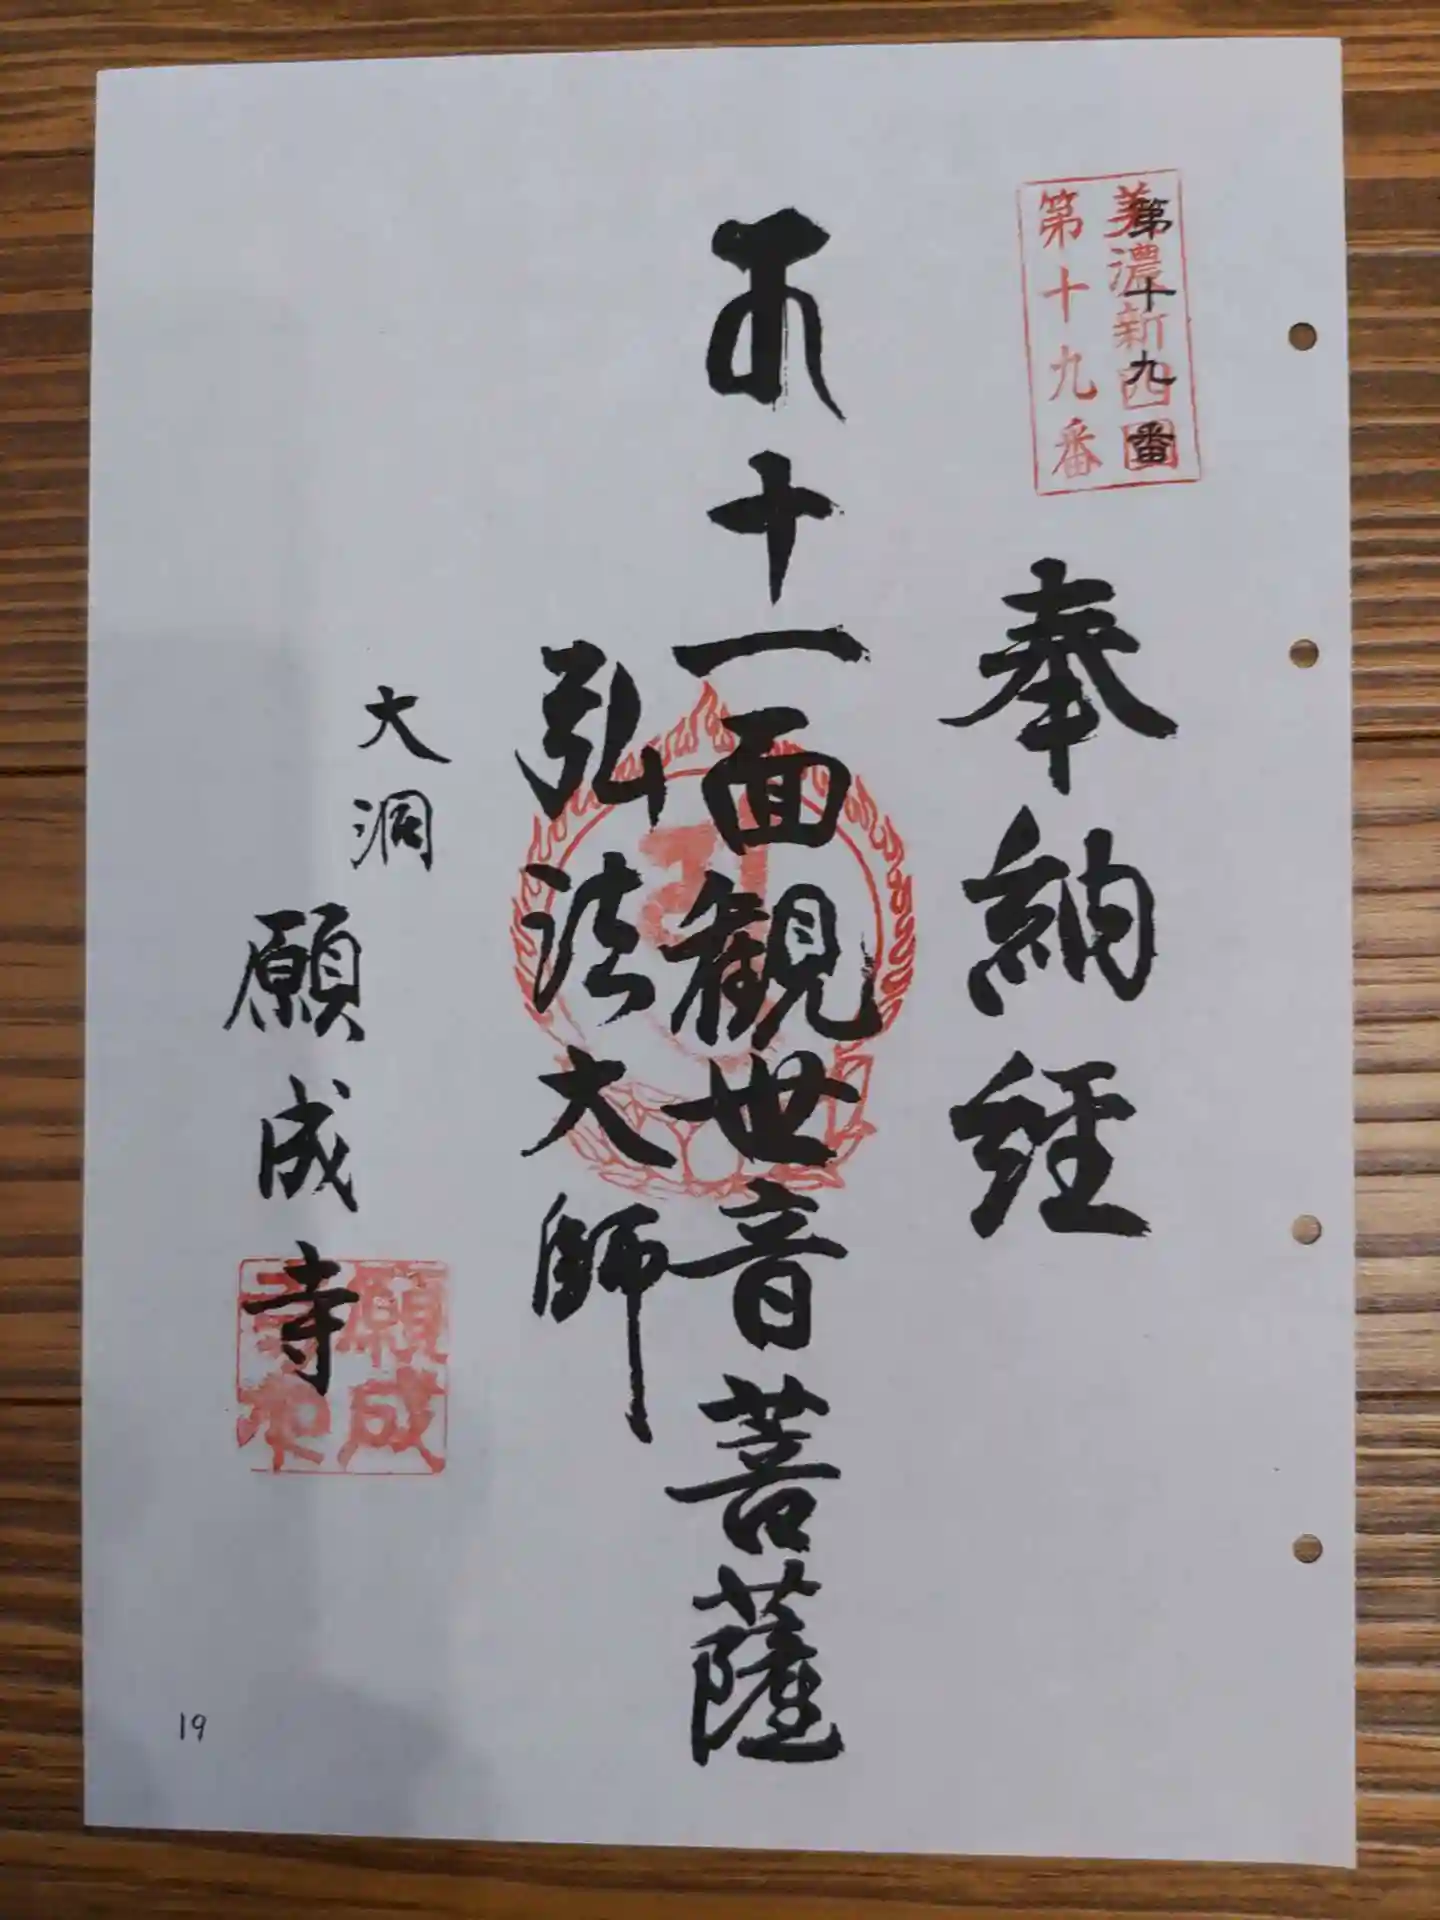 第十九番
美濃新四国
第十九番
奉納経
十一面観世音菩薩
弘法大師
大洞
願成寺
願成
寺印
19